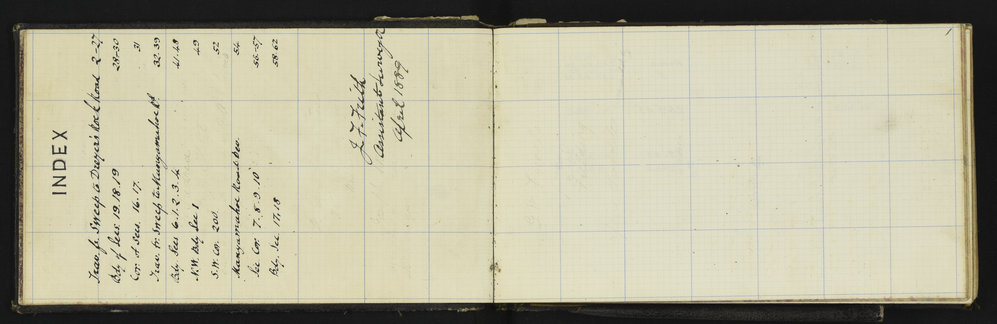 INDEX
Trav. fr. Sweep to Draper's Rock Road 2-27
Bdy of Secs. 19.18.19 28-30
Cor. of Secs. 16.17. 31
Trav. fr. Sweep to Mangamahoe Rd 32.39
Bdy. Secs 6.1.2.3.4 41.48
N.W. Bdy Sec 1 49
S.W. Cor. 200. 52
Mangamahoe Road Dev. 54
Sec Cor. 7.8.9.10 56-57
Bdy. Sec. 17.18 58.62
J. F. Frith
Assistant Surveyor
April 1889
1